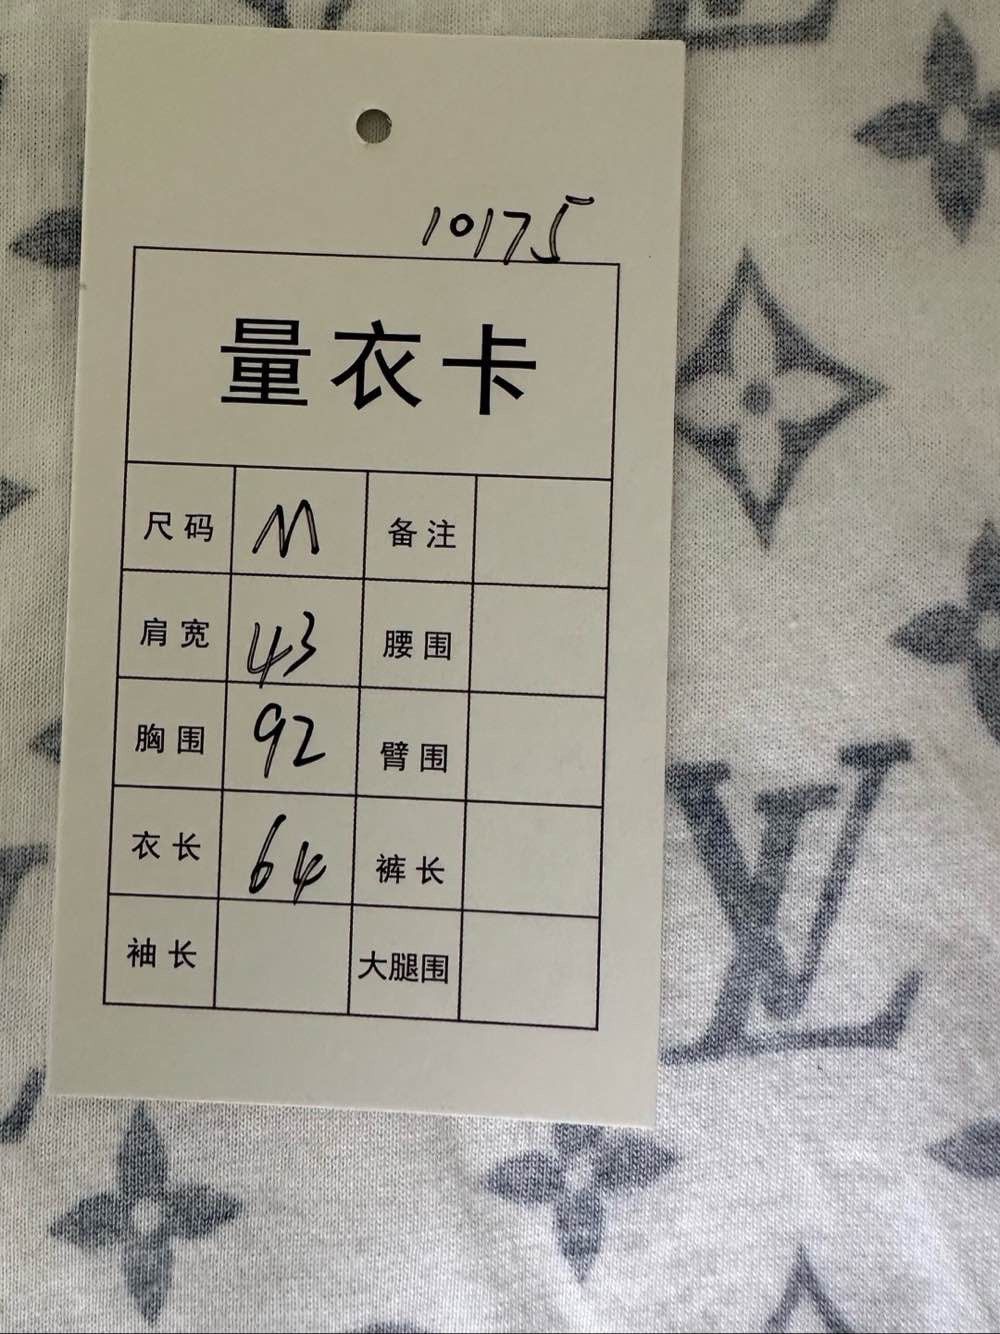 10175
量衣卡
尺码 M 备注
肩宽 43 腰围
胸围 92 臂围
衣长 64 裤长
袖长 大腿围
LV